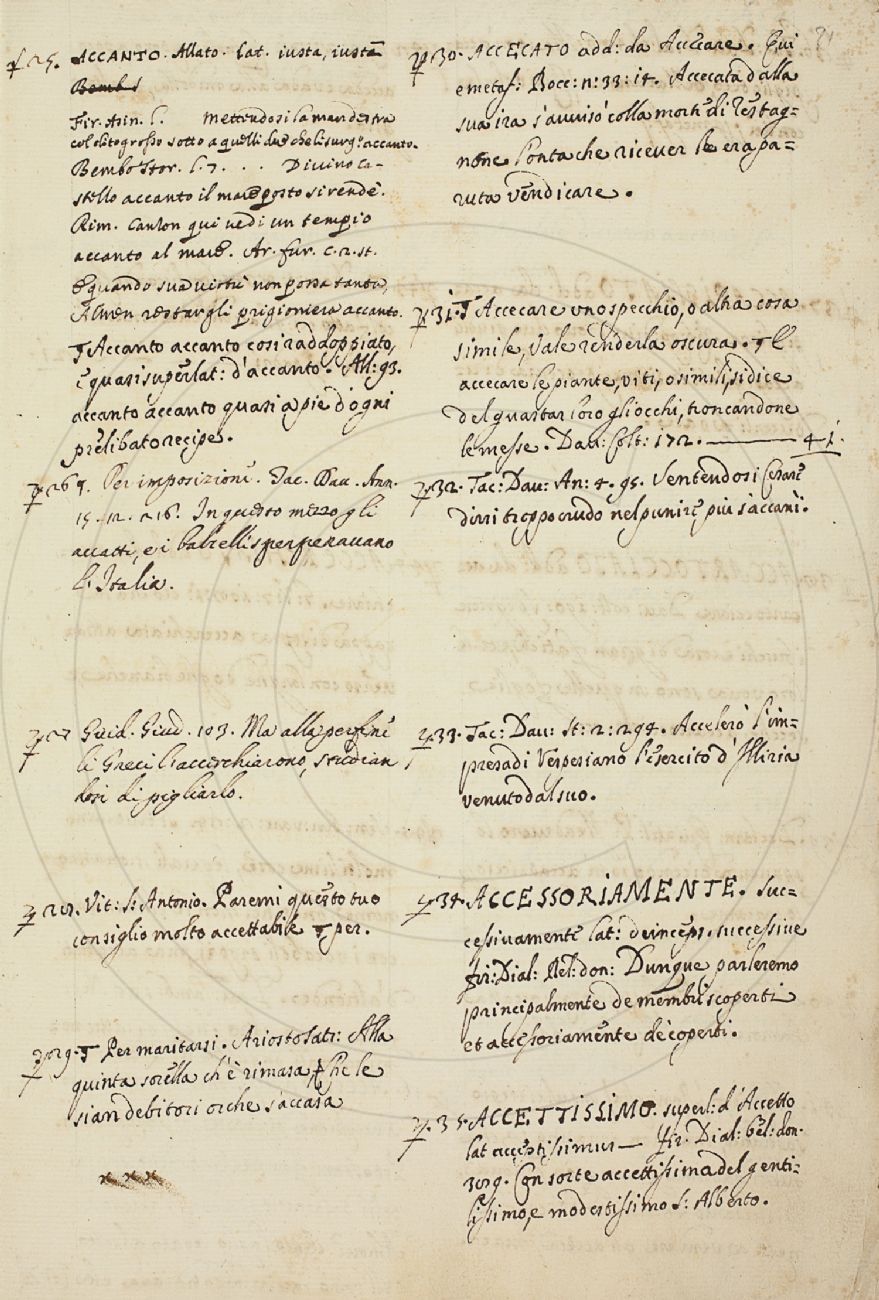 25. ACCANTO. Allato. lat. iuxta, iuxta
Bembo
Fir. Asin. l. mettendosi la man destra
col dito grosso sotto a quelli due che li surg.º accanto.
Bembo Stor. l. 7 . . . Divino ca-
stello accanto il mare posto si rende.
Rim. Canzon qui vedi un tempio
accanto al mare. Ar. fur. c. 2. st.
E quando sua virtù non possa tanto,
Almen restargli prigioniera accanto.
¶ Accanto accanto così raddoppiato,
è quasi superlat: d'accanto. All: 93.
accanto accanto quasi a piè d'ogni
prelibato recipe.
26 ¶. Per imposizione. Tac. Dav. Ann.
15. 12. 216. In questo mezzo gli
accatti, e i balzelli sperperavano
l'Italia.
27 Guid. Giud. 103. Ma alla perfine
li Greci l'accerchiarono, studian
dosi di pigliarlo.
28. Vit: S: Antonio. Paremi questo tuo
consiglio molto accettabile ¶ per.
29. ¶ Per maritarsi. Ariosto Sat: Alla
quinta sorella ch'è rimasa, Che le
sian debitori or che s'accasa
x x x
30. ACCECATO add: da Accecare. Qui
e metaf: Bocc: n: 33: 14. Accecata dalla
sua ira s'avvisò colla morte di Restag-
none l'onta che ricever le era pa-
ruta vendicare.
31. ¶ Accecare uno specchio, o altra cosa
simile, vale renderla oscura. ¶ E
accecare le piante, viti, o simili, si dice
del guastar loro gli occhi, troncandone
le messe. Dav: Colt: 172. ——— 41.
32. Tac: Dav: An: 4. 95. Ventendosi Cesare
dirsi troppo crudo nel punire, più s'accanì.
33. Tac: Dav: St: 2: 294. Accelerò l'im-
presa di Vespesiano l'esercito d'Illiria
venuto dal suo.
34. ACCESSORIAMENTE. Suc-
cessivamente lat: deinceps. successive
fir: Dial: Bel: don: Dunque parleremo
principalmente de membri scoperti
et accessoriamente de coperti.
35. ACCETTISSIMO. superl: d'Accetto
lat acceptissimus — fir: Dial: bel: don.
309. Consorte accettissima del genti-
lissimo, e modestissimo S: Alberto.